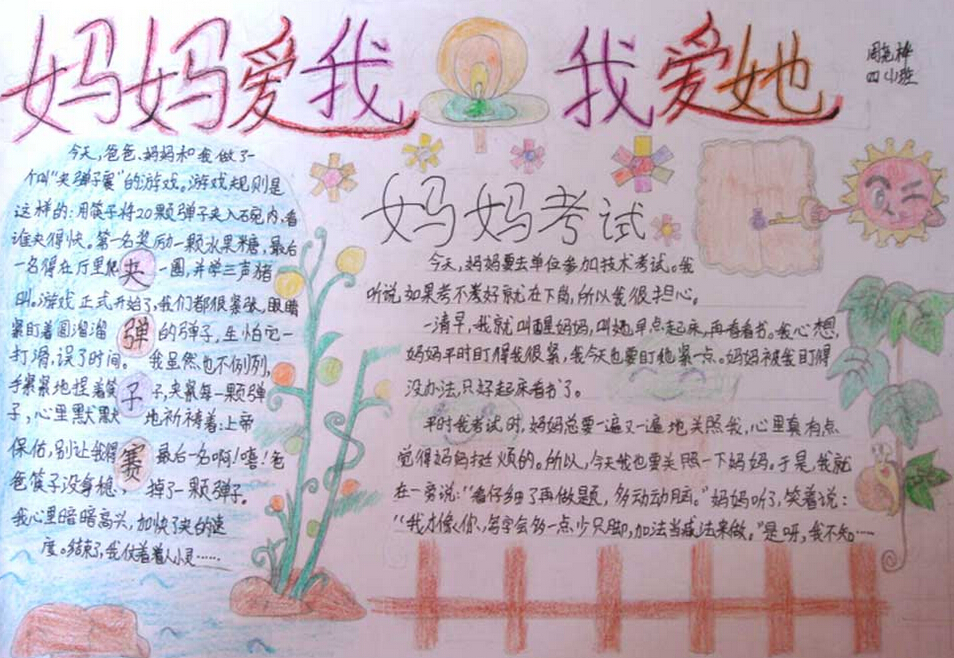 妈妈爱我 我爱她
四(1)班
今天,爸爸、妈妈和我做了一
个叫“夹弹子赛”的游戏。游戏规则是
这样的:用筷子将20颗弹子夹入碗内,看
谁夹得快。第一名奖励一颗水果糖,最后
一名得在厅里爬一圈,并学三声猪
叫。游戏正式开始了,我们都很紧张,眼睛
紧盯着圆溜溜的弹子,生怕它一
打滑,误了时间。我虽然也不例外,
手紧紧地捏着筷子,夹紧每一颗弹
子,心里默默地祈祷着:上帝
保佑,别让我得最后一名啊!嘻!爸
爸筷子没拿稳,掉了一颗弹子。
我心里暗暗高兴,加快了夹的速
度。结束了,我仗着着人小灵……
夹
弹
子
赛
妈妈考试
今天,妈妈要去单位参加技术考试。我
听说如果考不好就在下岗,所以我很担心。
一清早,我就叫醒妈妈,叫她早点起床,再看看书。我心想,
妈妈平时盯得我很紧,我今天也要盯她紧一点。妈妈被我盯得
没办法,只好起床看书了。
平时我考试时,妈妈总要一遍又一遍地关照我,心里真有点
觉得妈妈挺烦的。所以,今天我也要关照一下妈妈。于是,我就
在一旁说:“看仔细了再做题,多动动脑。”妈妈听了,笑着说:
“我才像你,写字会多一点少只脚,加法当减法来做。”是呀,我不知……